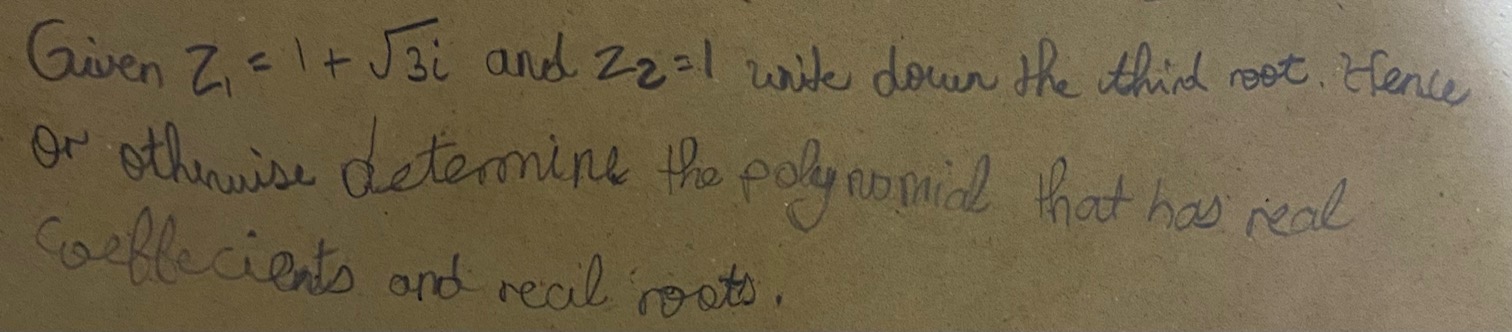 Given Z₁ = 1 + √3i and Z2=1 write down the third root. Hence
or otherwise determine the polynomial that has real
coeffecients and real roots.